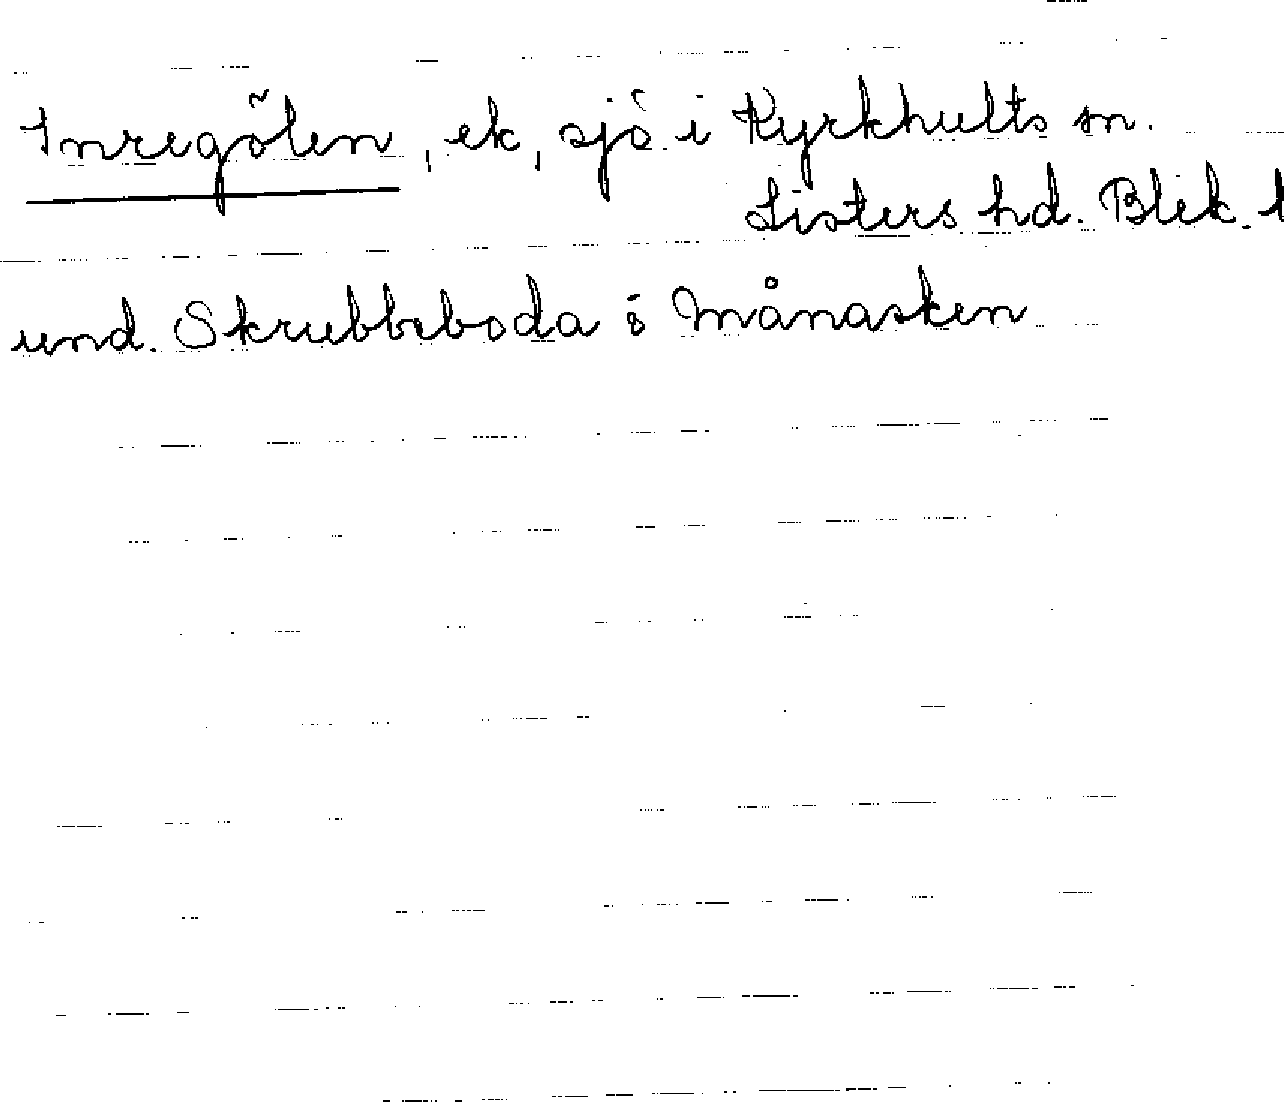 Inregölen, ek, sjö i Kyrkhults sn.
Listers hd. Blek. l
und. Skrubbeboda ö Månasken